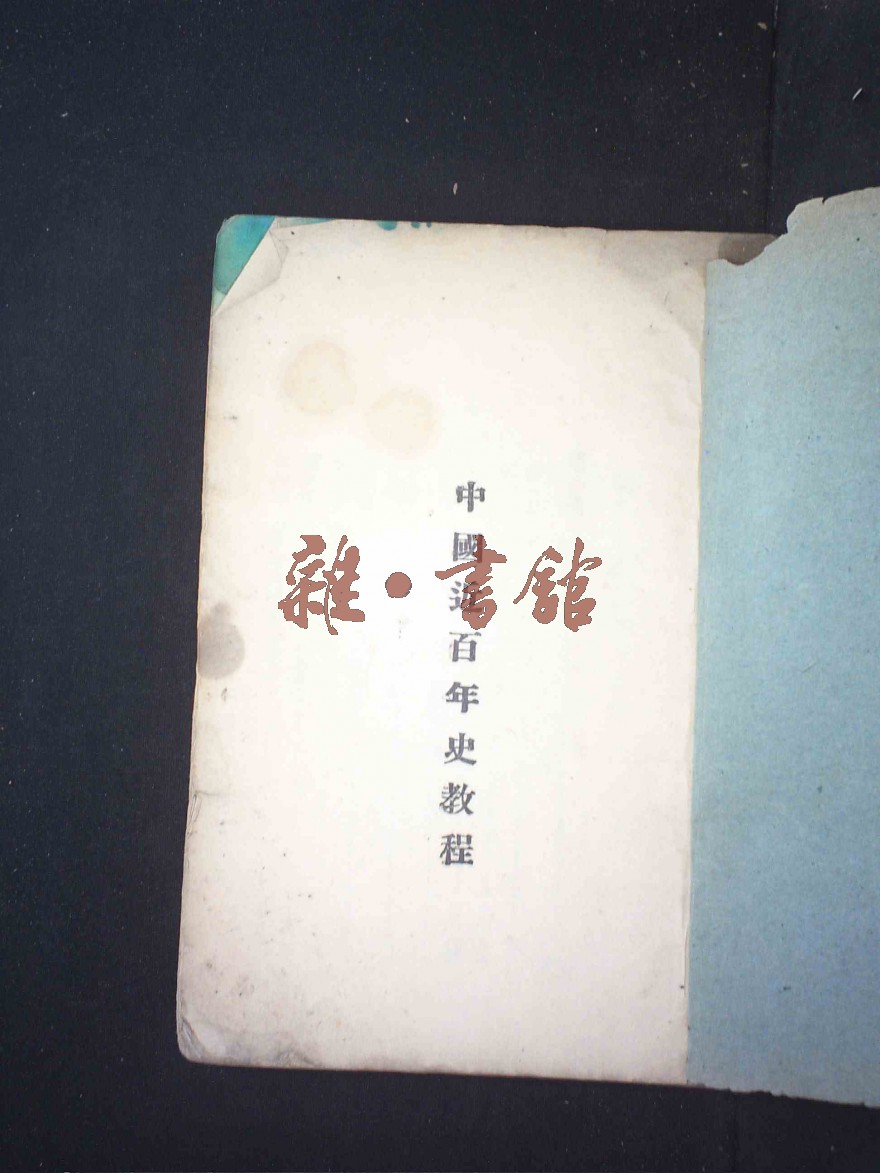 中國近百年史教程
雜·書館